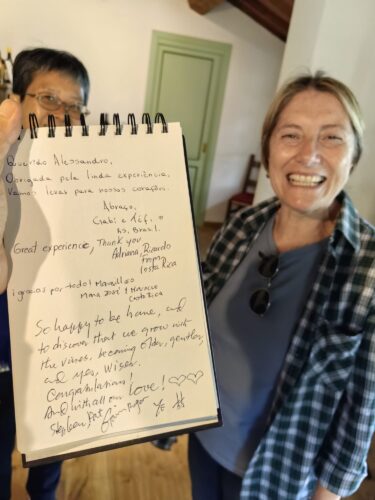 Querido Alessandro,
Obrigada pela linda experiência,
Vamos levar para nossos corações.
Abraço,
Gabi e
RS, Brasil.
Great experience, Thank you
Adriana, Ricardo
From
Costa Rica
¡Gracias por todo! Maravilloso
Maria José y
Costa Rica
So happy to be here, and
to discover that we grow with
the vines, becoming older, gentler,
and yes, wiser.
Congratulations!
And with all our Love! ♡♡
Stephen, Pat